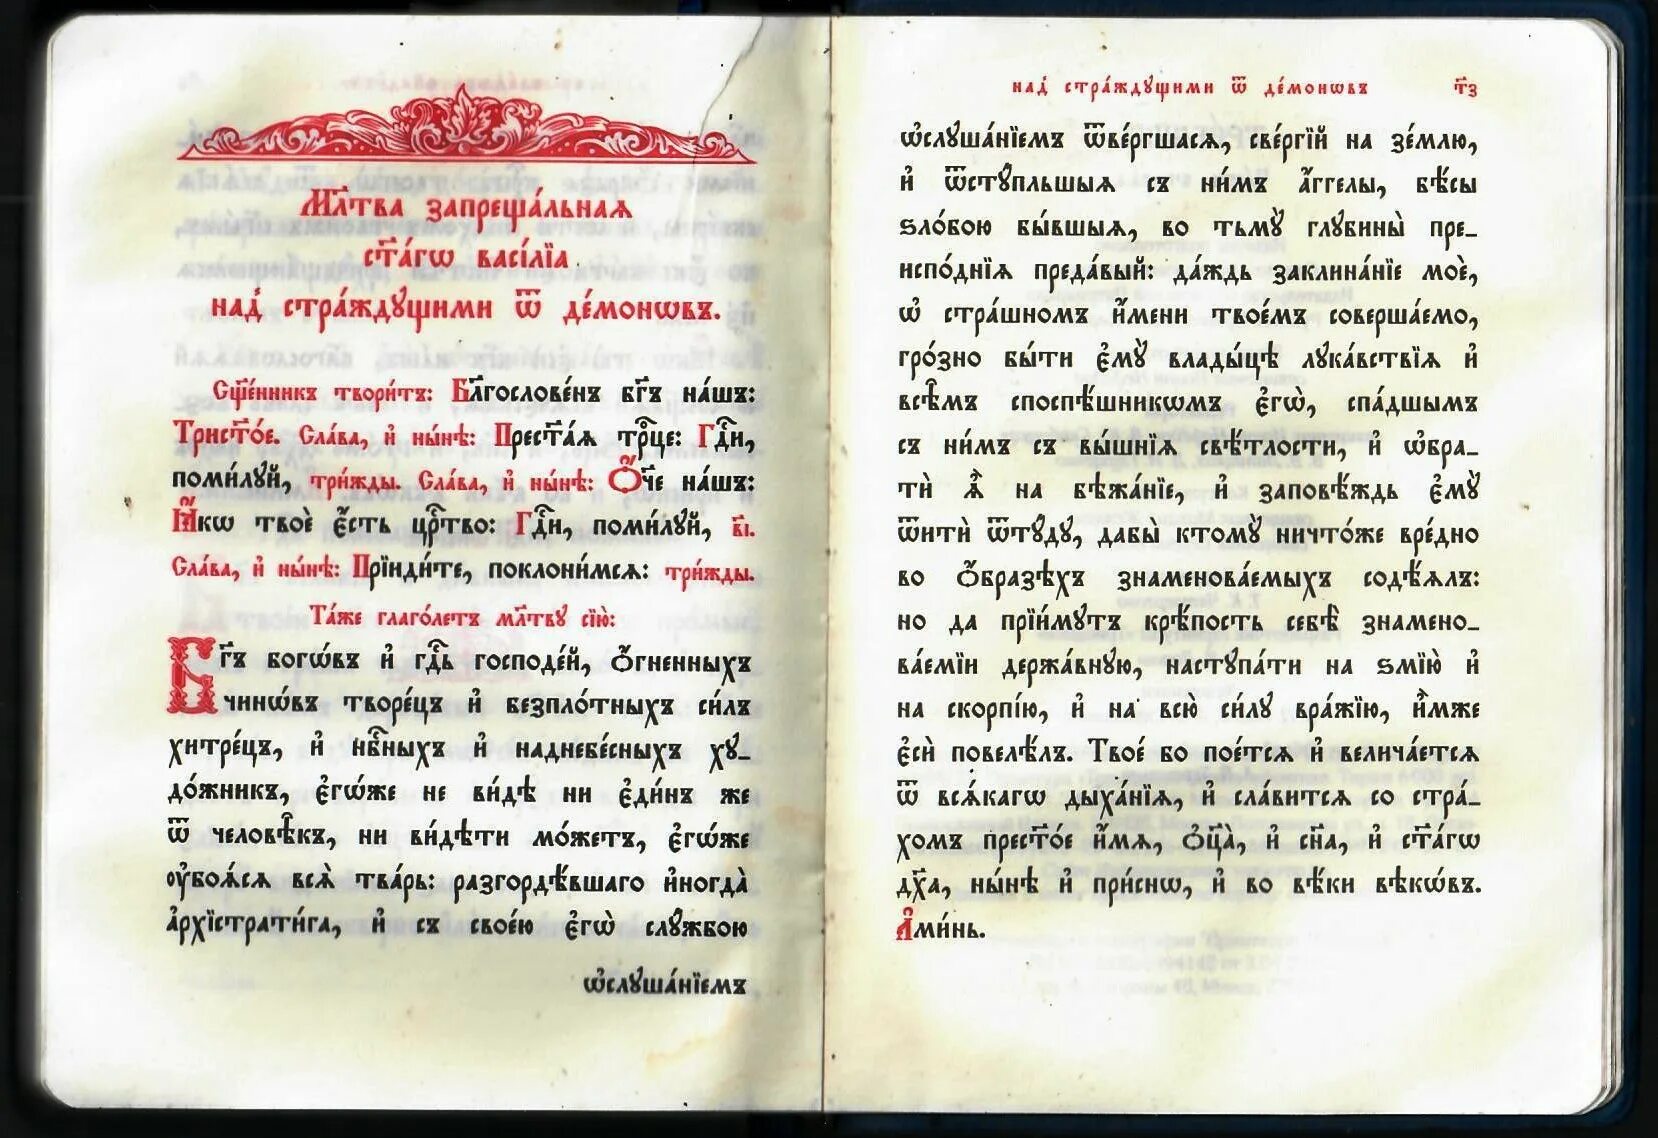 Мл҃тва запреща́льная
ст҃а́гѡ васі́лїа
над̾ стра́ждꙋщими ѿ де́монѡвъ.
Сщ҃е́нникъ твори́тъ: Бл҃гослове́нъ бг҃ъ на́шъ:
Трист҃о́е. Сла́ва, и҆ ны́нѣ: Прест҃а́ѧ трⷪ҇це: Гдⷭ҇и,
поми́лꙋй, три́жды. Сла́ва, и҆ ны́нѣ: Ѻ҆́ч҃е на́шъ:
Ꙗ҆́кѡ твоѐ є҆́сть црⷭ҇тво: Гдⷭ҇и, поми́лꙋй, в҃і.
Сла́ва, и҆ ны́нѣ: Прїиди́те, поклони́мсѧ: три́жды.
Та́же глаго́летъ мл҃твꙋ сїю̀:
Бг҃ъ богѡ́въ и҆ гдⷭ҇ь господе́й, ѻ҆́гненныхъ
чинѡ́въ творе́цъ и҆ безпло́тныхъ си́лъ
хитре́цъ, и҆ нбⷭ҇ныхъ и҆ наднебе́сныхъ хꙋ_
до́жникъ, є҆гѡ́же не ви́дѣ ни є҆ди́нъ же
ѿ человѣ́къ, ни ви́дѣти мо́жетъ, є҆гѡ́же
ᲂу҆боѧ́сѧ всѧ̀ тва́рь: разгордѣ́вшаго и҆ногда̀
а҆рхїстрати́га, и҆ съ свое́ю є҆гѡ̀ слꙋ́жбою
ѡ҆слꙋша́нїемъ
над̾ стра́ждꙋщими ѿ де́монѡвъ т҃з
ѡ҆слꙋша́нїемъ ѿве́ргшасѧ, све́ргїй на зе́млю,
и҆ ѿстꙋ́пльшыѧ съ ни́мъ а҆́ггелы, бѣ́сы
ѕло́бою бы́вшыѧ, во тьмꙋ̀ глꙋбины̀ пре_
испо́днїѧ преда́вый: да́ждь заклина́нїе моѐ,
ѡ҆ стра́шномъ и҆́мени твое́мъ соверша́емо,
гро́зно бы́ти є҆мꙋ̀ влады́цѣ лꙋка́вствїѧ и҆
всѣ̑мъ споспѣ́шникѡмъ є҆гѡ̀, спа́дшымъ
съ ни́мъ съ вы́шнїѧ свѣ́тлости, и҆ ѡ҆бра_
тѝ ѧ҆̀ на бѣжа́нїе, и҆ заповѣ́ждь є҆мꙋ̀
ѿитѝ ѿтꙋ́дꙋ, дабы̀ ктомꙋ̀ ничто́же вре́дно
во ѻ҆́бразѣхъ знаменова́емыхъ содѣ́ѧлъ:
но да прїи́мꙋтъ крѣ́пость себѣ̀ знамено_
ва́емїи держа́внꙋю, настꙋпа́ти на ѕмїю̀ и҆
на скорпі́ю, и҆ на всю̀ си́лꙋ вра́жїю, и҆́мже
є҆сѝ повелѣ́лъ. Твое́ бо пое́тсѧ и҆ велича́етсѧ
ѿ всѧ́кагѡ дыха́нїѧ, и҆ сла́витсѧ со стра́_
хомъ прест҃о́е и҆́мѧ, ѻ҆ц҃а̀, и҆ сн҃а, и҆ ст҃а́гѡ
дх҃а, ны́нѣ и҆ при́снѡ, и҆ во вѣ́ки вѣкѡ́въ.
А҆ми́нь.